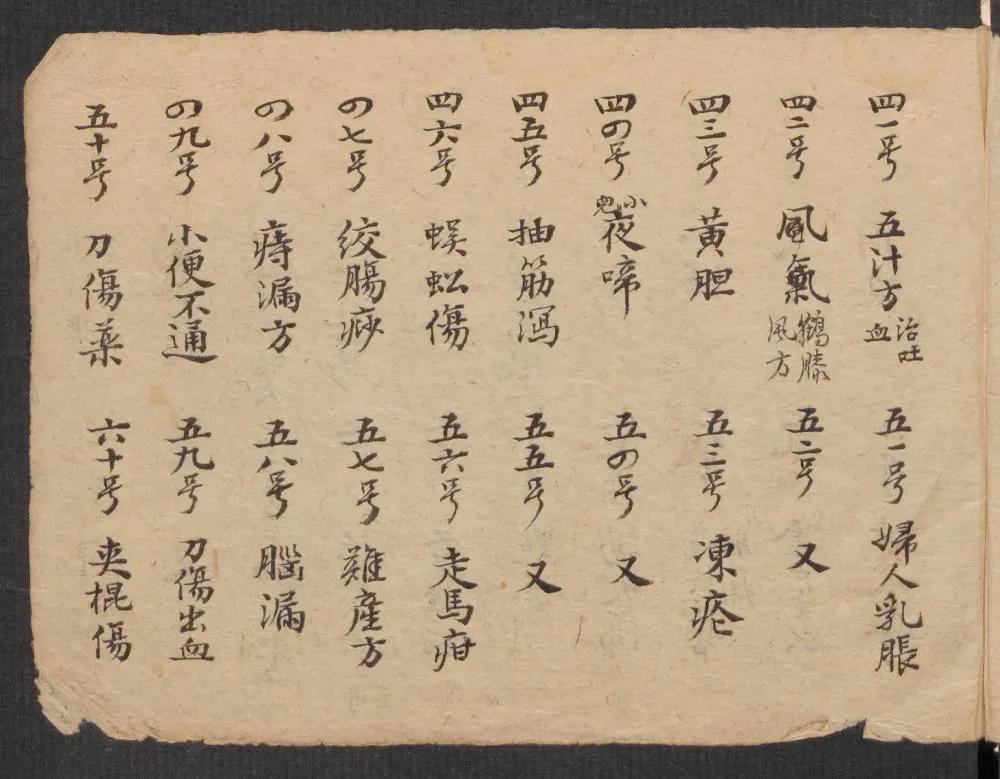 四一号 五汁方 治吐血
四二号 風氣 鶴膝風方
四三号 黄胆
四の号 小兒夜啼
四五号 抽筋瀉
四六号 蜈蚣傷
の七号 绞腸痧
の八号 痔漏方
の九号 小便不通
五十号 刀傷薬
五一号 婦人乳脹
五二号 又
五三号 凍疮
五の号 又
五五号 又
五六号 走馬疳
五七号 難産方
五八号 腦漏
五九号 刀傷出血
六十号 夾棍傷